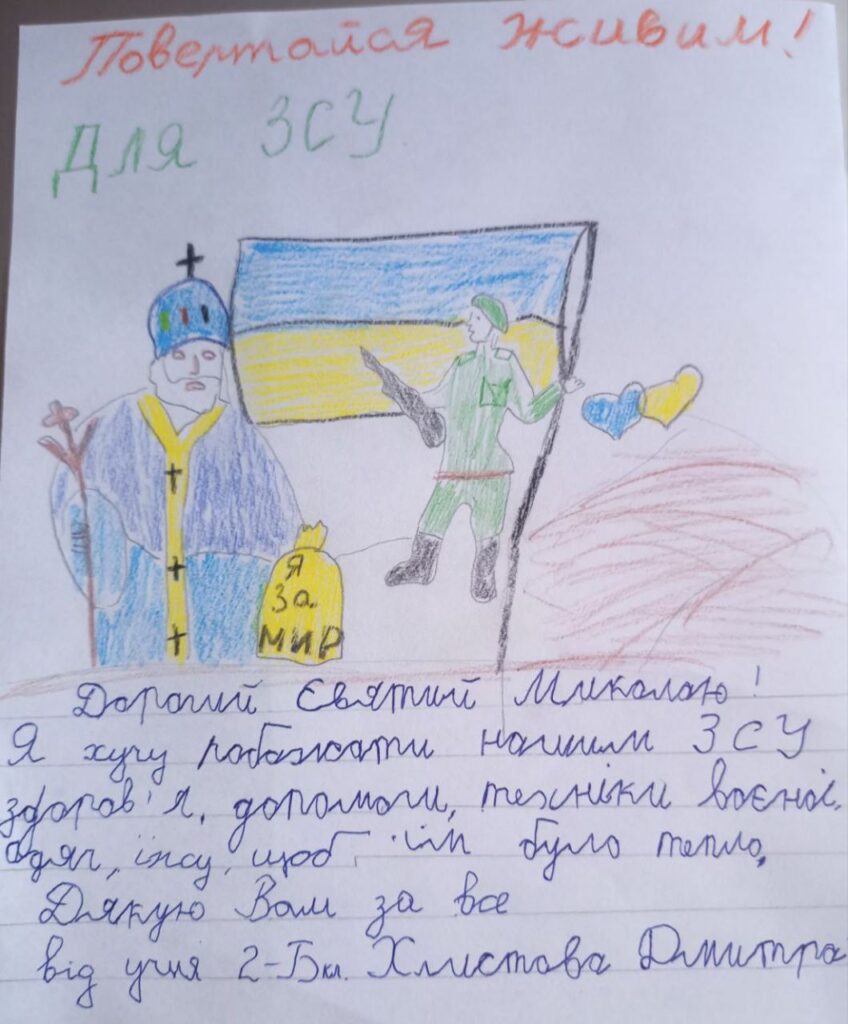 Повертайся живим!
Для ЗСУ
Я
За
МИР
Дорогий Святий Миколаю!
Я хучу побажати нашим ЗСУ
здоров'я, допомоги, техніки воєної,
одяг, їжу, щоб їм було тепло,
Дякую Вам за все
від учня 2-Б кл. Хлистова Дмитра